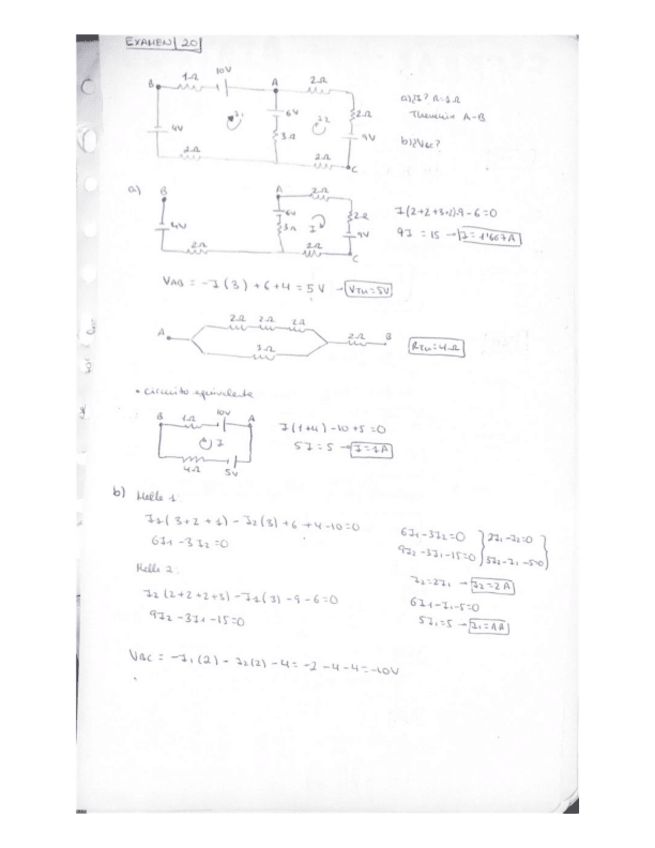 EXAMEN 20
1Ω 10V A 2Ω
B
4V I1 6V I2 2Ω
3Ω 9V
2Ω 2Ω C
a) ¿I? R=1Ω
Thevenin A-B
b) ¿VBC?
a) B A 2Ω
4V 6V 3Ω I 2Ω 9V
2Ω 2Ω C
I(2+2+3+2)-9-6=0
9I = 15 → I=1'667A
VAB = -I(3)+6+4=5V → VTH=5V
2Ω 2Ω 2Ω
A 2Ω B
3Ω
RTH=4Ω
• circuito equivalente
B 1Ω 10V A
I
4Ω 5V
I(1+4)-10+5=0
5I=5 → I=1A
b) Malla 1:
I1(3+2+1)-I2(3)+6+4-10=0
6I1-3I2=0
Malla 2:
I2(2+2+2+3)-I1(3)-9-6=0
9I2-3I1-15=0
6I1-3I2=0 } 2I1-I2=0
9I2-3I1-15=0 } 3I2-I1-5=0
I2=2I1 → I2=2A
6I1-I1-5=0
5I1=5 → I1=1A
VBC = -I1(2) - I2(2) -4 = -2-4-4=-10V